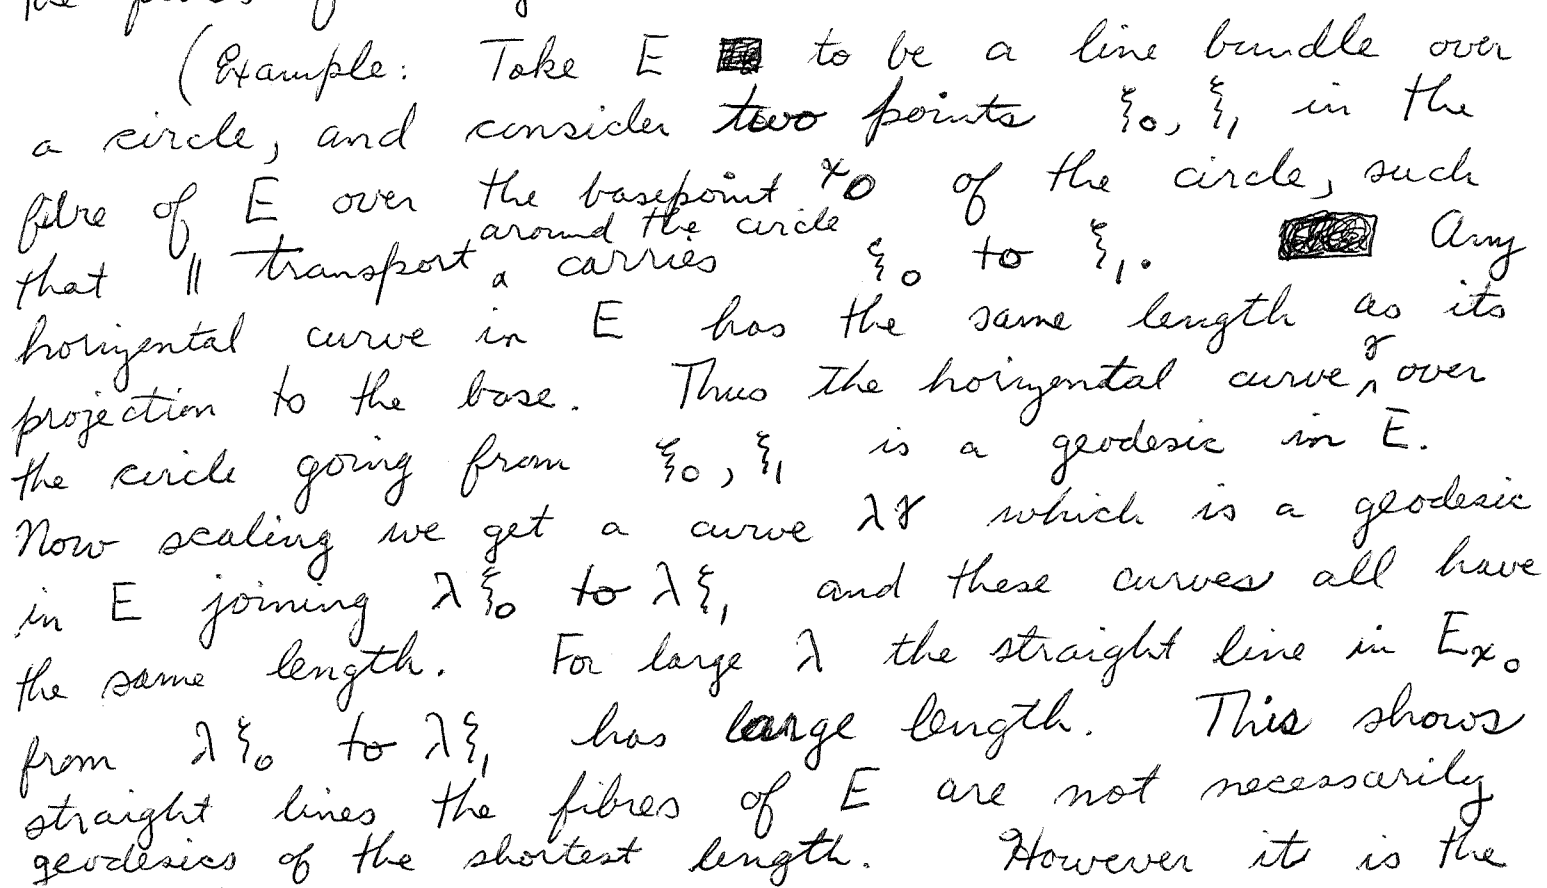 (Example: Take E to be a line bundle over
a circle, and consider two points ξ₀, ξ₁ in the
fibre of E over the basepoint x₀ of the circle, such
that ∥ transport around the circle carries ξ₀ to ξ₁. Any
horizontal curve in E has the same length as its
projection to the base. Thus the horizontal curve γ over
the circle going from ξ₀, ξ₁ is a geodesic in E.
Now scaling we get a curve λγ which is a geodesic
in E joining λξ₀ to λξ₁ and these curves all have
the same length. For large λ the straight line in Eₓ₀
from λξ₀ to λξ₁ has large length. This shows
straight lines the fibres of E are not necessarily
geodesics of the shortest length. However it is the